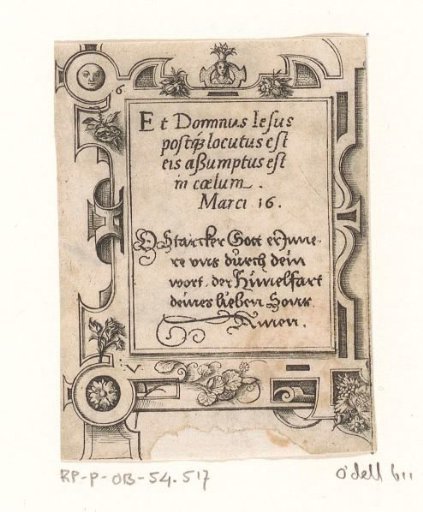 6
Et Dominus Iesus
postq̃ locutus est
eis aßumptus est
in cœlum.
Marci 16.
O Starcker Gott erinne-
re vns durch dein
wort, der Himelfart
deines lieben Sons
Amen.
V
RP-P-OB-54.517
O'dell 611